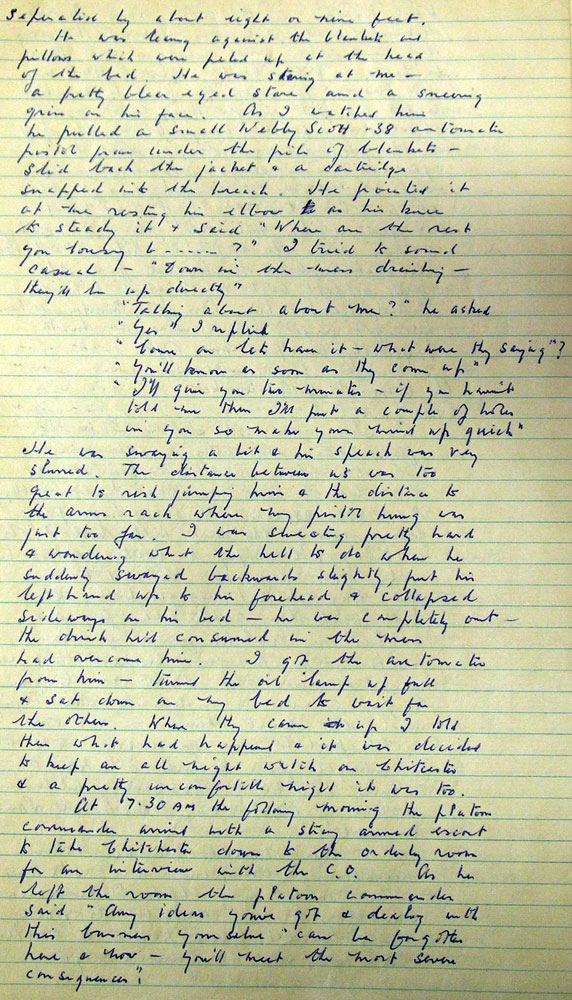 Seperated by about eight or nine feet.
He was leaning against the blankets and
pillows which were piled up at the head
of the bed. He was staring at me —
a pretty blear eyed stare and a sneering
grin on his face. As I watched him
he pulled a small Webly Scott .38 automatic
pistol from under the pile of blankets —
slid back the jacket & a cartridge
snapped into the breach. He pointed it
at me resting his elbow on his knee
to steady it & said "Where are the rest
you lousy b......?" I tried to sound
casual — "Down in the mess drinking —
they'll be up directly"
"Talking about about me?" he asked
"Yes" I replied
"Come on lets have it — what were they saying"?
"You'll know as soon as they come up"
"I'll give you two minutes — if you haven't
told me then I'll put a couple of holes
in you so make your mind up quick"
He was swaying a bit & his speach was very
slurred. The distance between us was too
great to risk jumping him & the distance to
the arms rack where my pistol hung was
just too far. I was sweating pretty hard
& wondering what the hell to do when he
suddenly swayed backwards slightly, put his
left hand up to his forehead & collapsed
sideways on his bed — he was completely out —
the drink he'd consumed in the mess
had overcome him. I got the automatic
from him — turned the oil lamp up full
& sat down on my bed to wait for
the others. When they came up I told
them what had happened & it was decided
to keep an all night watch on Chitchester
& a pretty uncomfortable night it was too.
At 7.30 AM the following morning the platoon
commander arrived with a strong armed escort
to take Chitchester down to the orderly room
for an interview with the C.O. As he
left the room the platoon commander
said "Any ideas you've got & dealing with
this business yourselve" can be forgotten
here & now — you'll meet the most severe
consequences".